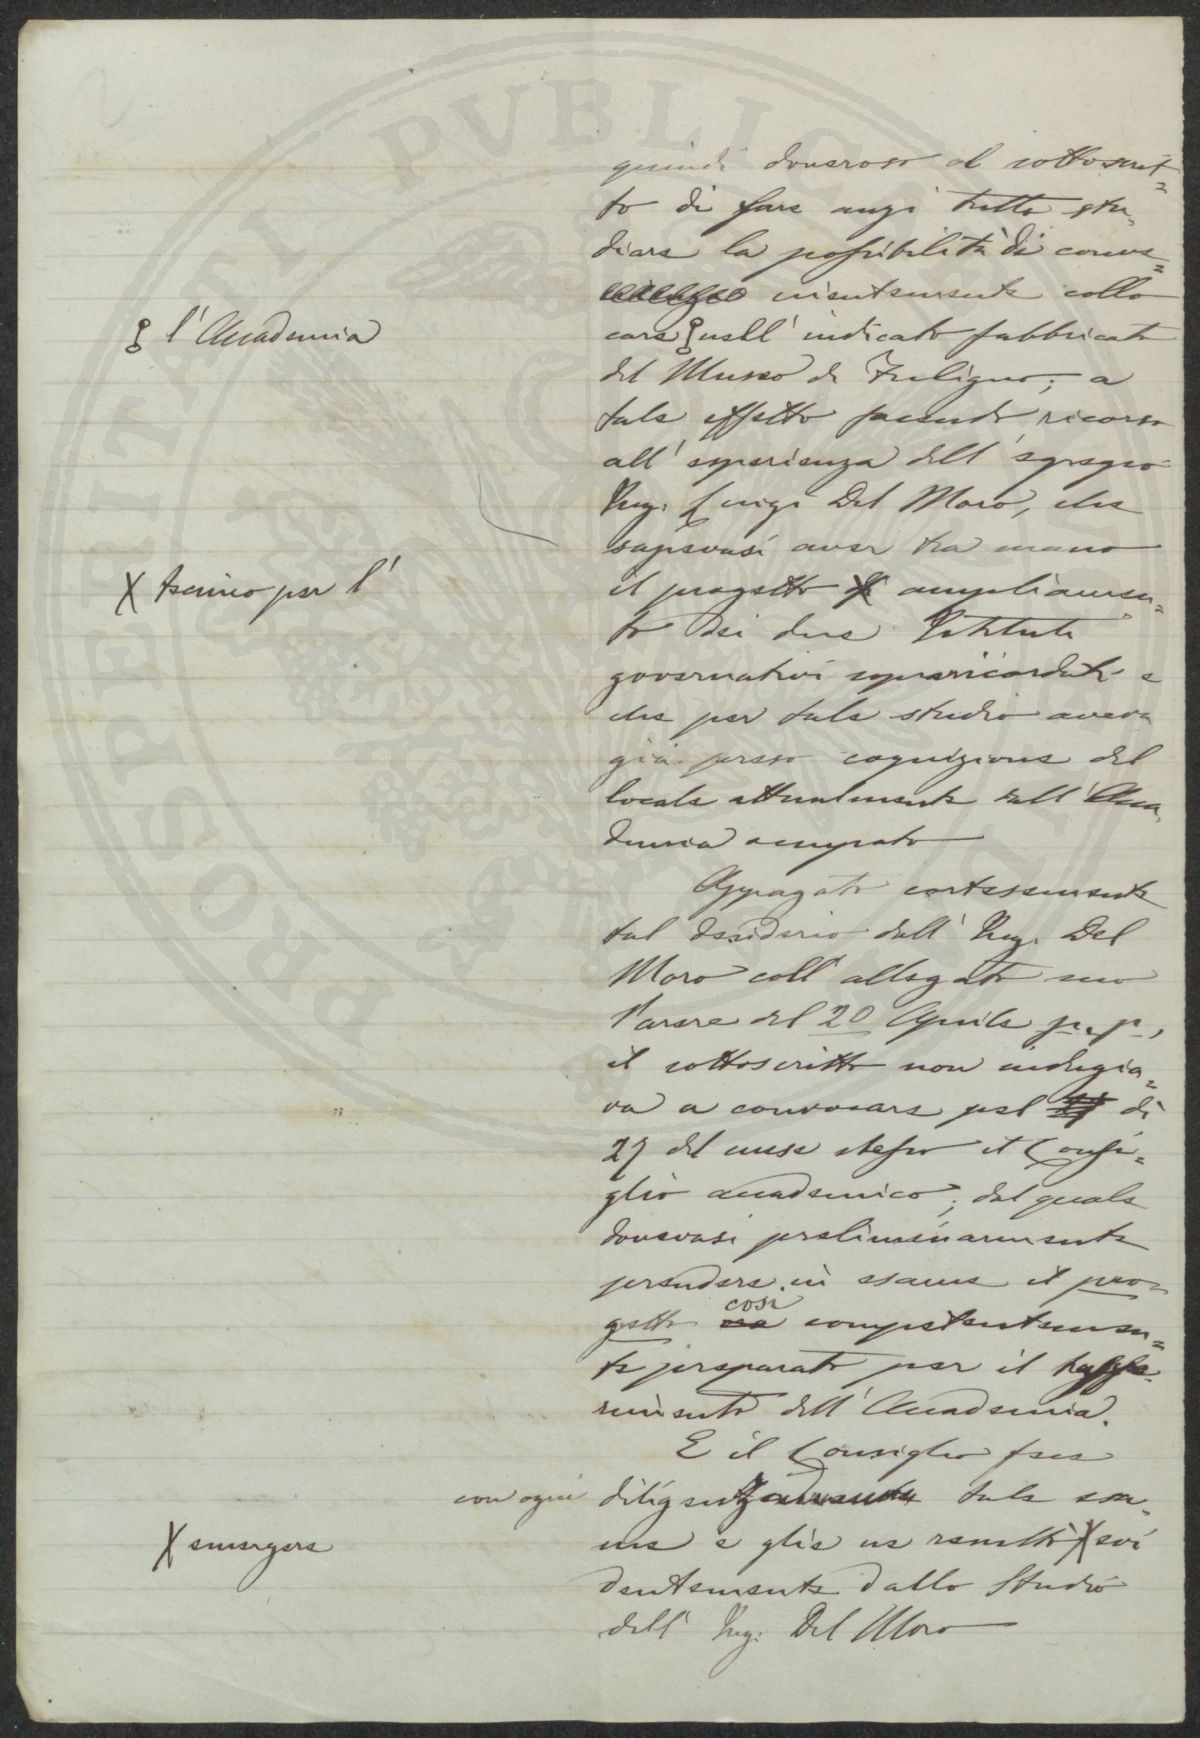 quindi doveroso al sottoscrit=
to di fare anzi tutto stu=
diare la possibilità di conve=
nientemente collo
care nell' indicato fabbricato
l' Accademia
del Museo di Fuligno; a
tale effetto facendo ricorso
all' esperienza dell' egregio
Ing. Luigi Del Moro, che
sapevasi aver tra mano
il progetto di ampliamen=
X tecnico per l'
to dei due Istituti
governativi sopraricordati e
che per tale studio aveva
già preso cognizione del
locale attualmente dall' Acca=
demia occupato
Appagato cortesemente
tal desiderio dall' Ing. Del
Moro coll' allegato suo
Parere del 20 Aprile p.p,
il sottoscritto non indugia=
va a convocare pel dì
27 del mese stesso il Consi=
glio accademico, dal quale
dovevasi preliminarmente
prendere in esame il pro=
getto così competentemen=
te preparato per il trasfe=
rimento dell' Accademia.
E il Consiglio fece
con ogni diligenza tale esa=
me e glie ne resultò X evi
X emergere
dentemente dallo Studio
dell' Ing. Del Moro
PROSPERITATI PVBLICAE